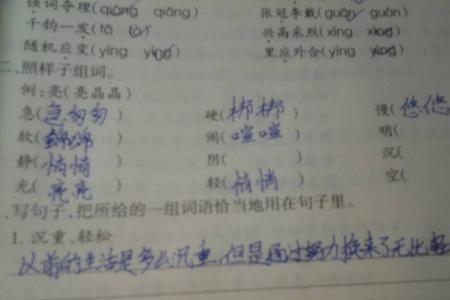 强词夺理(qiáng qiǎng) 张冠李戴(guān guàn)
千钧一发(fā fà) 兴高采烈(xīng xìng)
随机应变(yīng yìng) 里应外合(yīng yìng)
二、照样子组词。
例:亮(亮晶晶)
急(急匆匆) 硬(梆梆) 慢(悠悠
软(绵绵) 闹(喧喧) 明(
静(悄悄) 阴( ) 沉(
光(亮亮) 轻(悄悄) 空(
、写句子,把所给的一组词语恰当地用在句子里。
1. 沉重、轻松
以前的生活是多么沉重,但是通过努力换来了无比轻